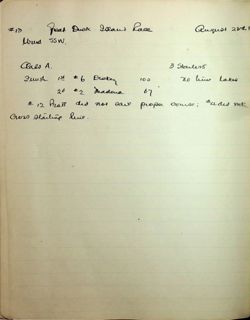 #13 Great Duck Island Race August 22nd
Wind SSW.
Class A. 3 Starters
Finish 1st #6 100 no time taken
2d #2 Madona 67
#12 Pratt did not sail proper course; did not
Cross starting line.